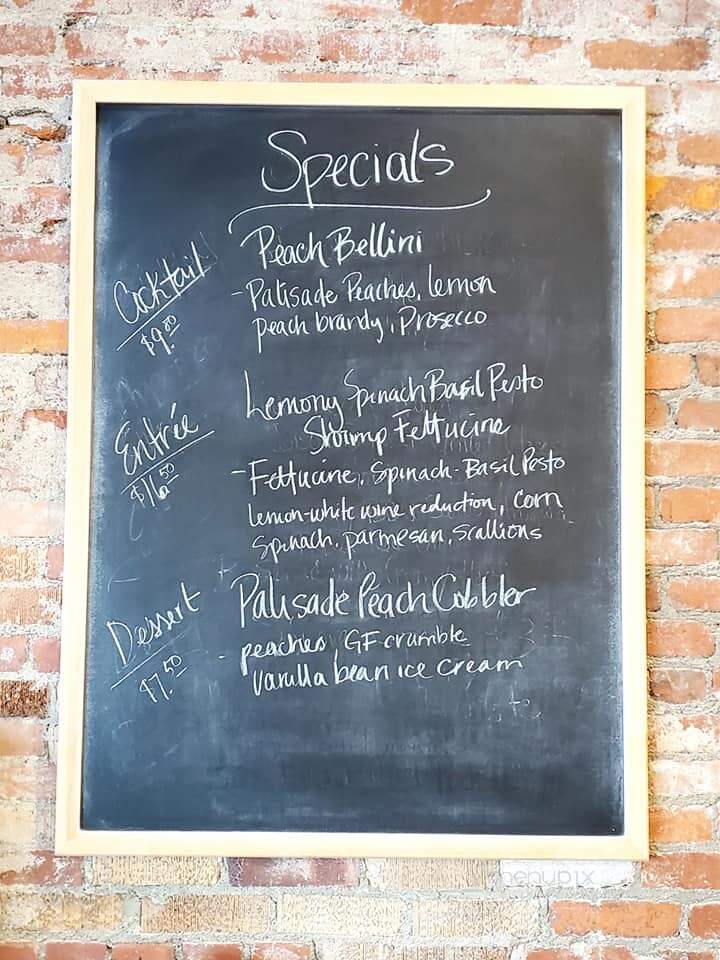 Specials
Cocktail
$9.00
Peach Bellini
- Palisade Peaches, lemon
peach brandy, Prosecco
Entrée
$16.50
Lemony Spinach Basil Pesto
Shrimp Fettucine
- Fettucine, Spinach-Basil Pesto
lemon-white wine reduction, corn
Spinach, parmesan, scallions
Dessert
$7.50
Palisade Peach Cobbler
- peaches, GF crumble
vanilla bean ice cream
menupix